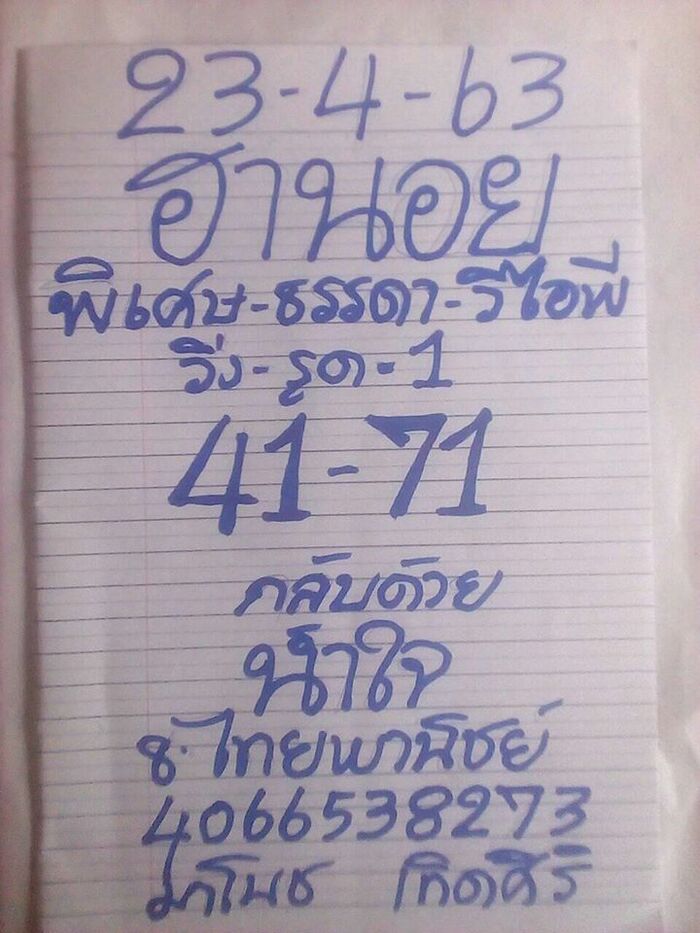 23-4-63
ฮานอย
พิเศษ-ธรรดา-วีไอพี
วิ่ง-รูด-1
41-71
กลับด้วย
น้ำใจ
ธ.ไทยพานิชย์
4066538273
มาโนช เกิดศิริ